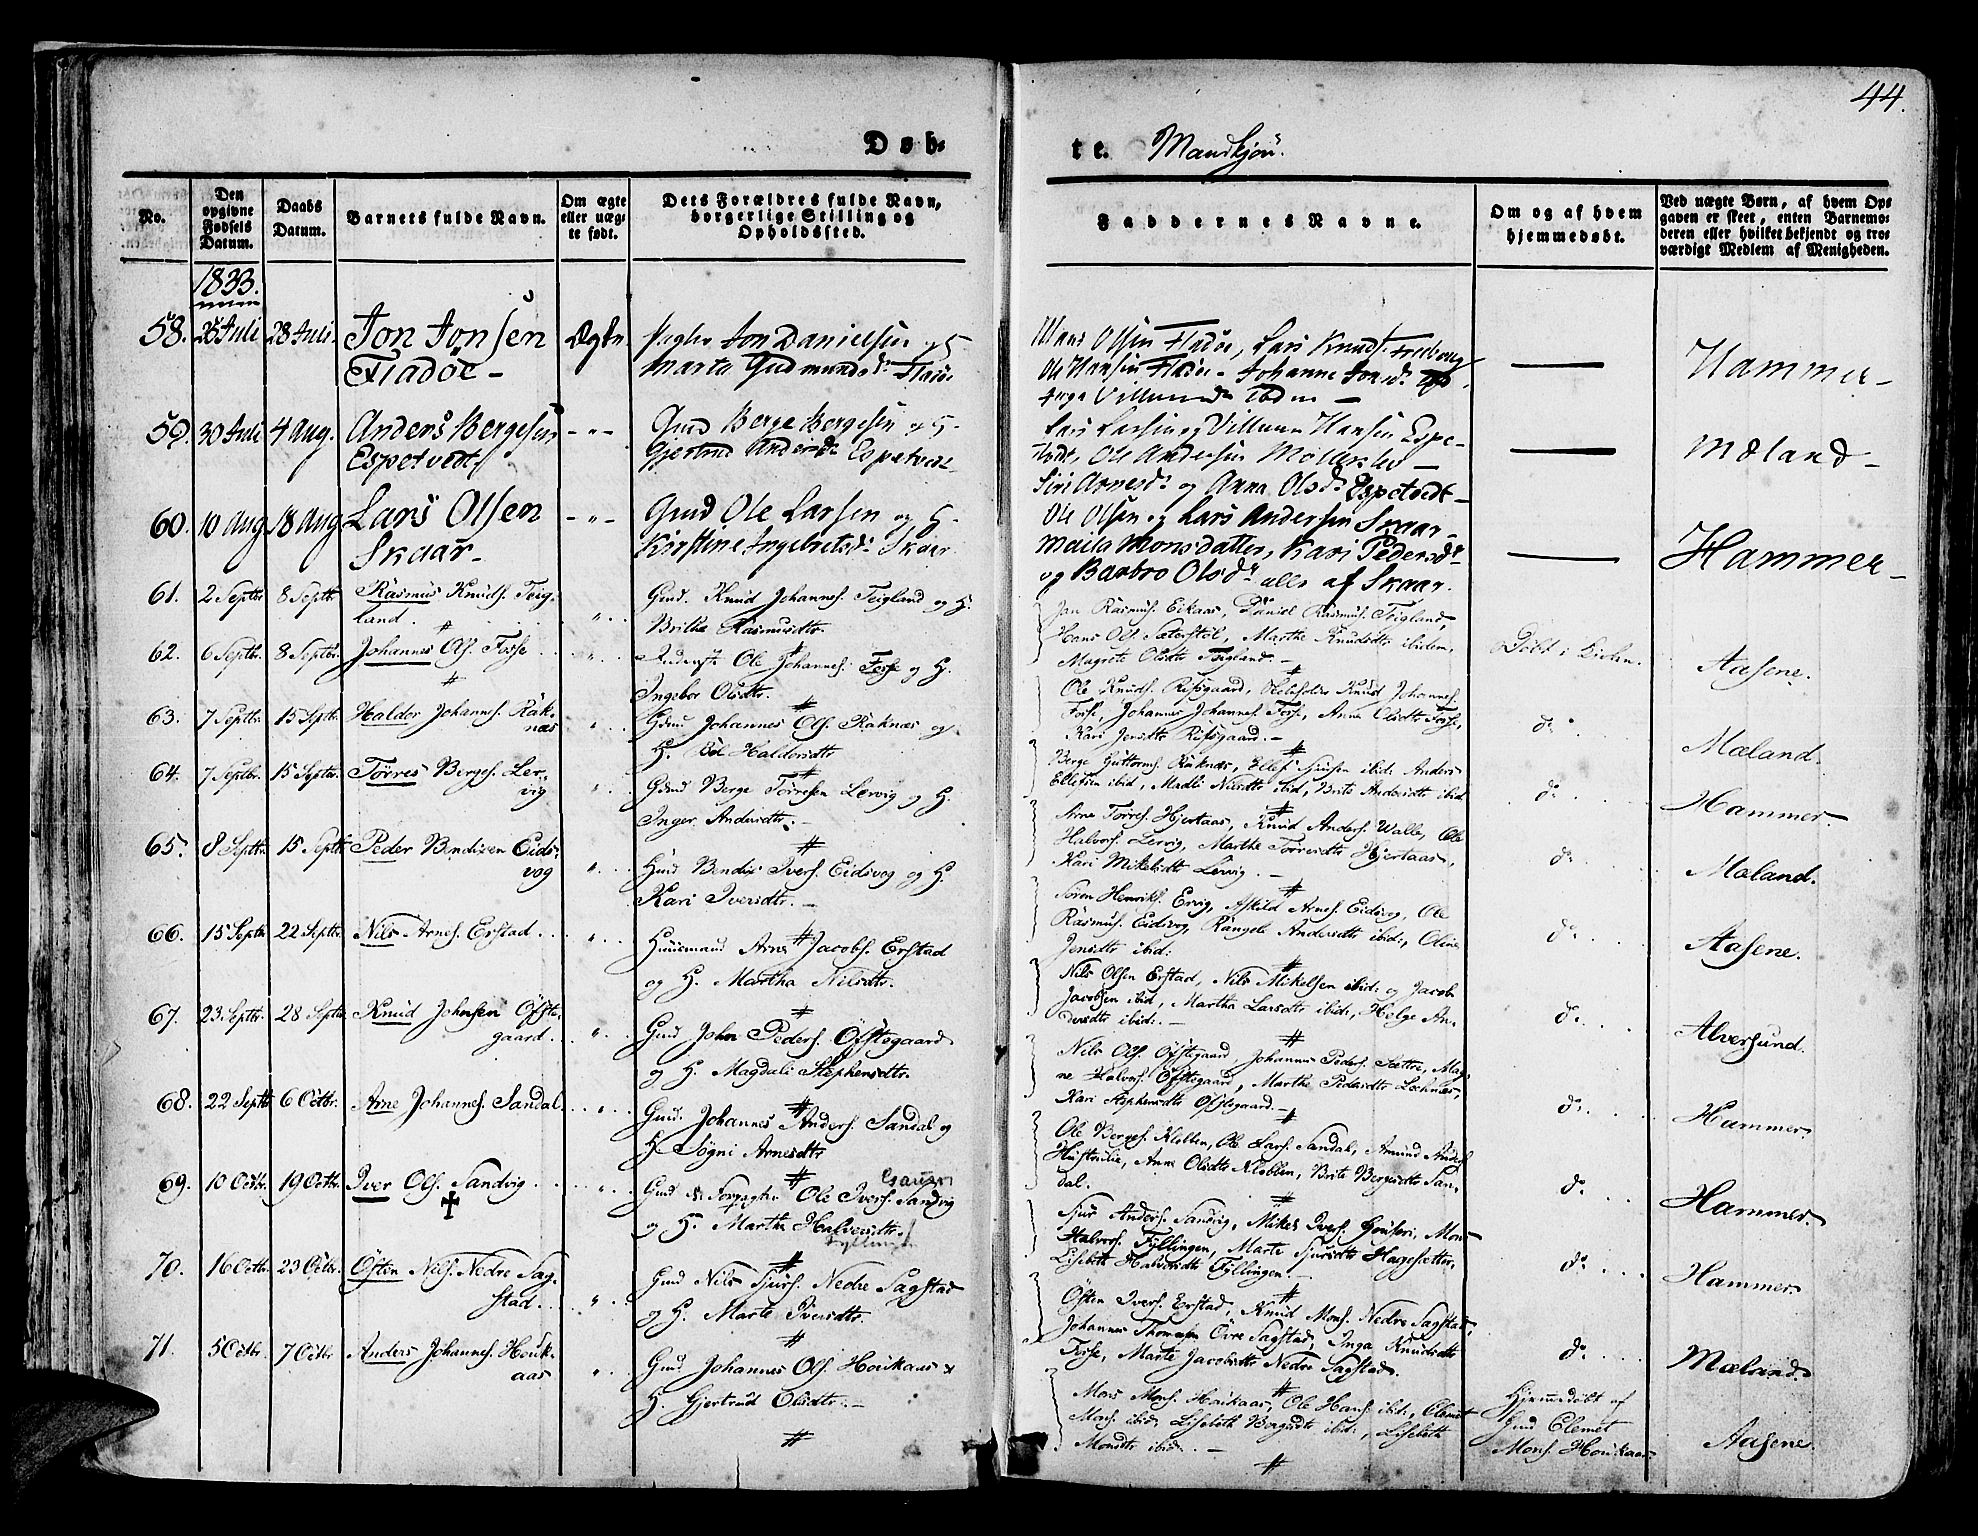 44.
Døb-
te. Mandkjøn.
No.
Den
opgivne
Fødsels
Datum.
Daabs
Datum.
Barnets fulde Navn.
Om ægte
eller uæg-
te født.
Dets Forældres fulde Navn,
borgerlige Stilling og
Opholdssted.
Faddernes Navne.
Om og af hvem
hjemmedøbt.
Ved uægte Børn, af hvem Op-
gaven er skeet, enten Barnemo-
deren eller hvilket bekjendt og tro-
værdigt Medlem af Menigheden.
1833.
58. 25 Juli 28 Juli. Jon Jonsen Ægte.
Fladöe -
Jon Danielsen og H
Marta Gudmundsdr Fladöe
Hans Olsen Fladöe, Lars Knuds.
Ole Hansen Fladöe - Johanne Jonsdr
— Hammer -
59. 30 Juli 4 Aug. Anders Bergesen - " -
Espetvedt
Gmd Berge Bergesen og H-
Gjertrud Andersdr Espetvedt
Lars Larsen og Villum Hansen Espe-
tvedt, Ole Andersen
Siri Arnesdr og Anna Olsdr Espetvedt -
— Mæland -
60. 10 Aug 18 Aug Lars Olsen - " -
Skaar -
Gmd Ole Larsen og H-
Kirstine Ingebretsdr Skaar
Ole Olsen og Lars Andersen Skaar -
Monsdatter, Kari Pedersdr
og Barbro Olsdr alle af Skaar.
— Hammer -
61. 2 Septbr. 8 Septbr. Rasmus Knuds. Teig-
land. "
Gmd. Knud Johannes. Teigland og H.
Brithe Rasmusdtr.
Jan Rasmus. Eikaas, Daniel Rasmus. Teigland,
Hans Ols. Sæterstøl, Marthe Knudsdtr ibidem,
Magrete Olsdtr Teigland. -
Døbt i Kirken. Aasene.
62. 6 Septbr. 8 Septbr. Johannes Ols. Fosse "
Ole Johannes. Fosse og H.
Ingebor Olsdtr.
Ole Knuds. Rissgaard, Knud Johannes.
Fosse, Johannes Johannes. Fosse, Anne Olsdtr Fosse,
Kari Jensdtr Risgaard. -
do Mæland.
63. 7 Septbr. 15 Septbr. Haldor Johannes. Rak-
næs "
Gmd Johannes Ols. Raknæs og
H. Haldorsdtr
Berge Guttorms. Raknæs, Ellef ibid. Anders
Ellefsen ibid, Madli Nilsdtr ibid, Brite Andersdtr ibid.
do Hammer.
64. 7 Septbr. 15 Septbr. Torres Berges. Ler-
vig "
Gmd Berge Torresen Lervig og H.
Inger Andersdtr. -
Arne Torres. Hjertaas, Knud Anders. Walle, Ole
Halvors. Lervig, Marthe Torresdtr Hjertaas,
Kari Mikelsdtr Lervig. -
do Mæland.
65. 8 Septbr. 15 Septbr Peder Bendixen Eids-
vog "
Gmd Bendix Ivers. Eidsvog og H.
Kari Iversdtr. -
Sören Henriks. Ervig, Askild Arnes. Eidsvog, Ole
Rasmus. Eidsvog, Rangele Andersdtr ibid:, Oline
Jensdtr ibid:
do Aasene.
66. 15 Septbr 22 Septbr. Nils Arnes. Erstad "
Huusmand Arne Jacobs. Erstad
og H. Martha Nilsdtr.
Nils Olsen Erstad, Nils Mikelsen ibid: og Jacob
Jacobsen ibid, Martha Larsdtr ibid:, Helge An-
dersdtr ibid: -
do Alversund.
67. 23 Septbr. 28 Septbr. Knud Johnsen Öfste-
gaard. "
Gmd John Peders. Öfstegaard
og H. Magdali Stephensdtr.
Nils Ols. Öfstegaard, Johannes Peders. Sættre, Mag-
ne Halvors. Öfstegaard, Marthe Pedersdtr Lochnæs,
Kari Stephensdtr Öfstegaard. -
do Hammer.
68. 22 Septbr 6 Octbr. Arne Johannes. Sandal "
Gmd. Johannes Anders. Sandal og
H. Sögni Arnesdtr
Ole Berges. Kløbben, Ole Lars. Sandal, Amund Anders.
Anne Olsdtr Kløbben, Brite Bergesdtr San-
dal.
do Hammer.
69. 10 Octbr. 19 Octbr. Iver Ols. Sandvig "
✝
Gmd & Ole Ivers. Sandvig
og H. Marthe Halvorsdtr.
Fyllingen
Sjur Anders. Sandvig, Mikel Ivers. Mons
Halvors. Fyllingen, Marte Sjursdtr Hagesætter,
Lisebeth Halvorsdtr Fyllingen. -
do Hammer.
70. 16 Octbr. 23 Octbr. Östen Nils. Nedre Sag-
stad. "
Gmd Nils Sjurs. Nedre Sagstad
og H. Marte Iversdtr.
Östen Ivers. Erstad, Knud Mons. Nedre Sagstad,
Johannes Thomasen Övre Sagstad, Inga Knudsdtr
Fosse, Marte Jacobsdtr Nedre Sagstad.
do Mæland.
71. 5 Octbr. 7 Octbr Anders Johannes. Houk-
aas "
Gmd Johannes Ols. Houkaas &
H. Gjertrud Olsdtr. -
Mons Mons. Houkaas, Ole Hans. ibid:, Clemet
Mons. ibid, Lisebeth ibid:, Lisebeth
Monsdtr ibid. -
Hjemmedøbt af
Gmd Clemet
Mons. Houkaas.
Aasene.